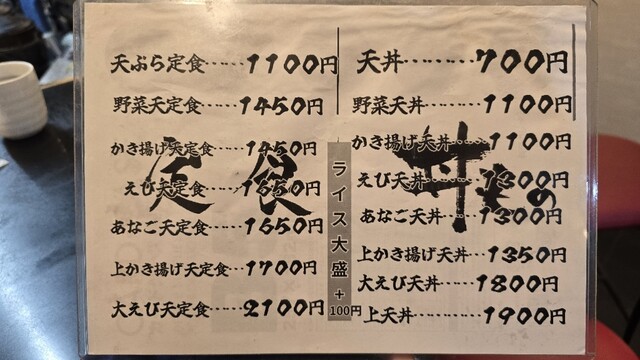 天ぷら定食……1100円
野菜天定食……1450円
かき揚げ天定食……1450円
えび天定食……1550円
あなご天定食……1650円
上かき揚げ天定食…1700円
大えび天定食……2100円
定食
ライス大盛+100円
天丼………700円
野菜天丼………1100円
かき揚げ天丼……1100円
えび天丼………1300円
あなご天丼………1300円
上かき揚げ天丼…1350円
大えび天丼……1800円
上天丼………1900円
丼もの